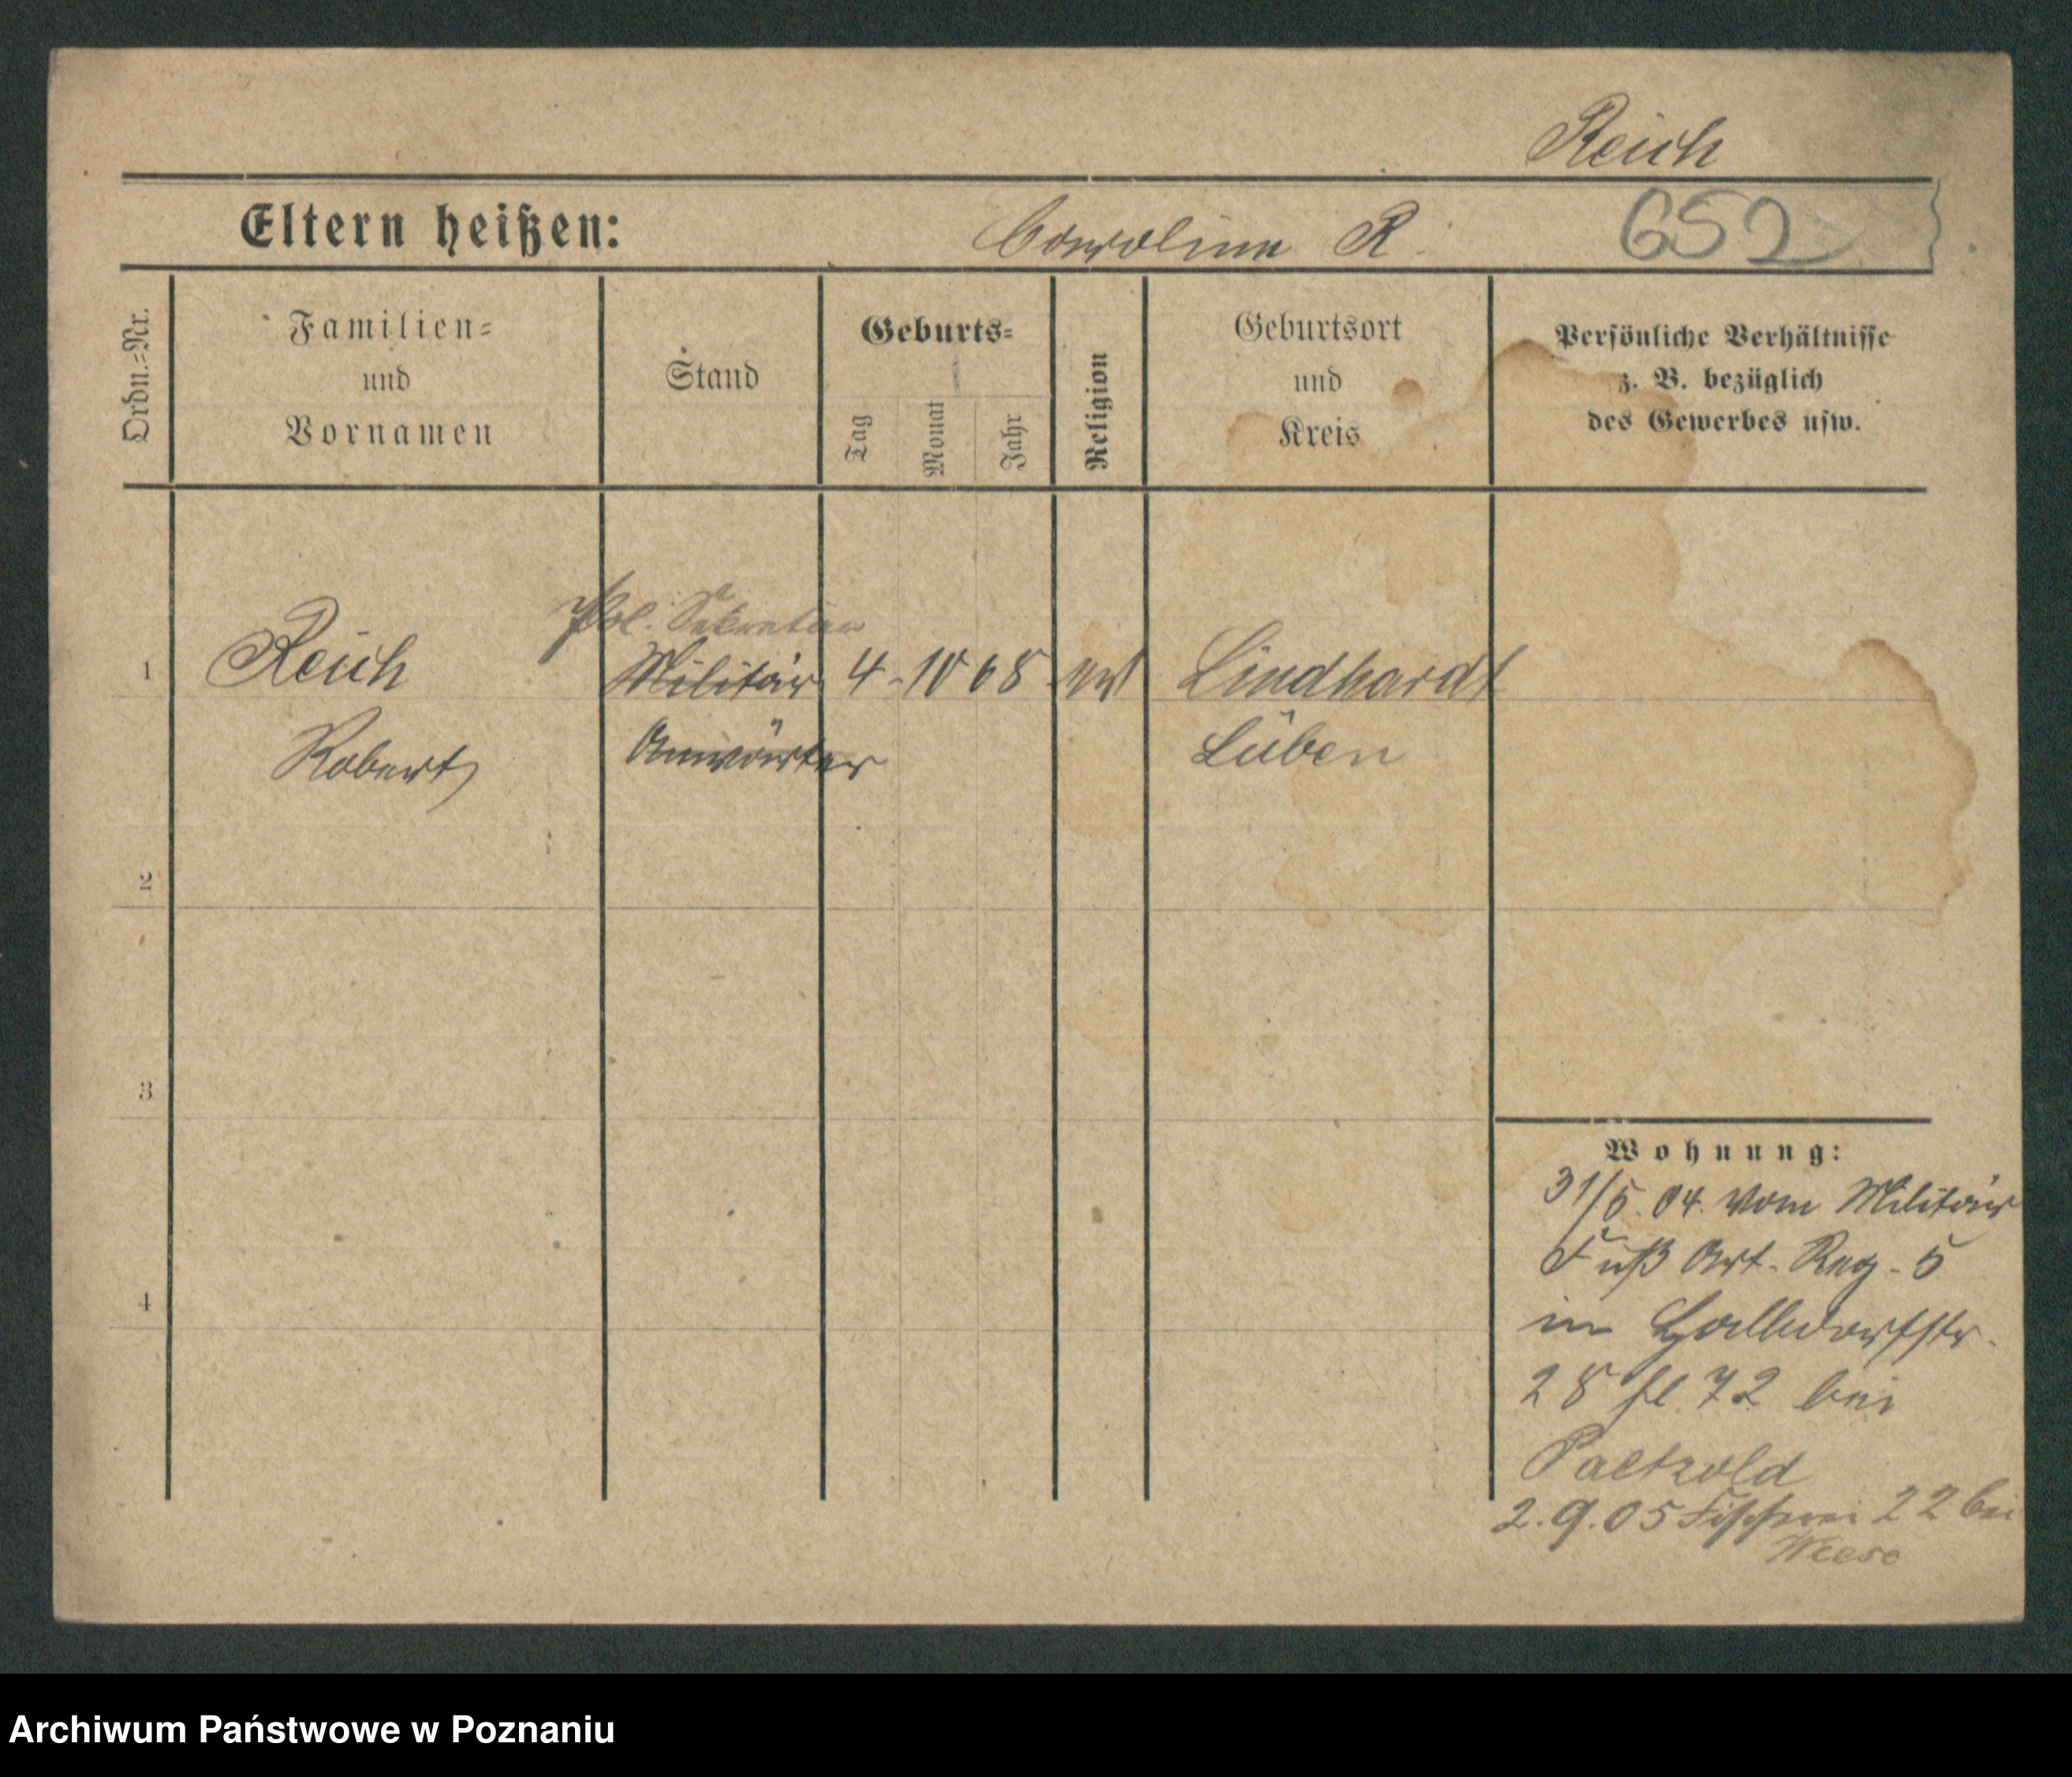 Reich
Eltern heißen: Caroline R. 652
Ordn.=Nr.
Familien=
und
Vornamen
Stand
Geburts=
Tag
Monat
Jahr
Religion
Geburtsort
und
Kreis
Persönliche Verhältnisse
z. B. bezüglich
des Gewerbes usw.
Pol. Sekretär
1 Reich Militär 4 - 10 68 Lindhardt
Robert Anwärter Lüben
2
3
4
Wohnung:
31/5. 04. vom Militär
Fuß Art. Reg. 5
in Halbdorfstr.
28 72 bei
Paetzold
2. 9. 05 Fischerei 22 bei
Weese
Archiwum Państwowe w Poznaniu